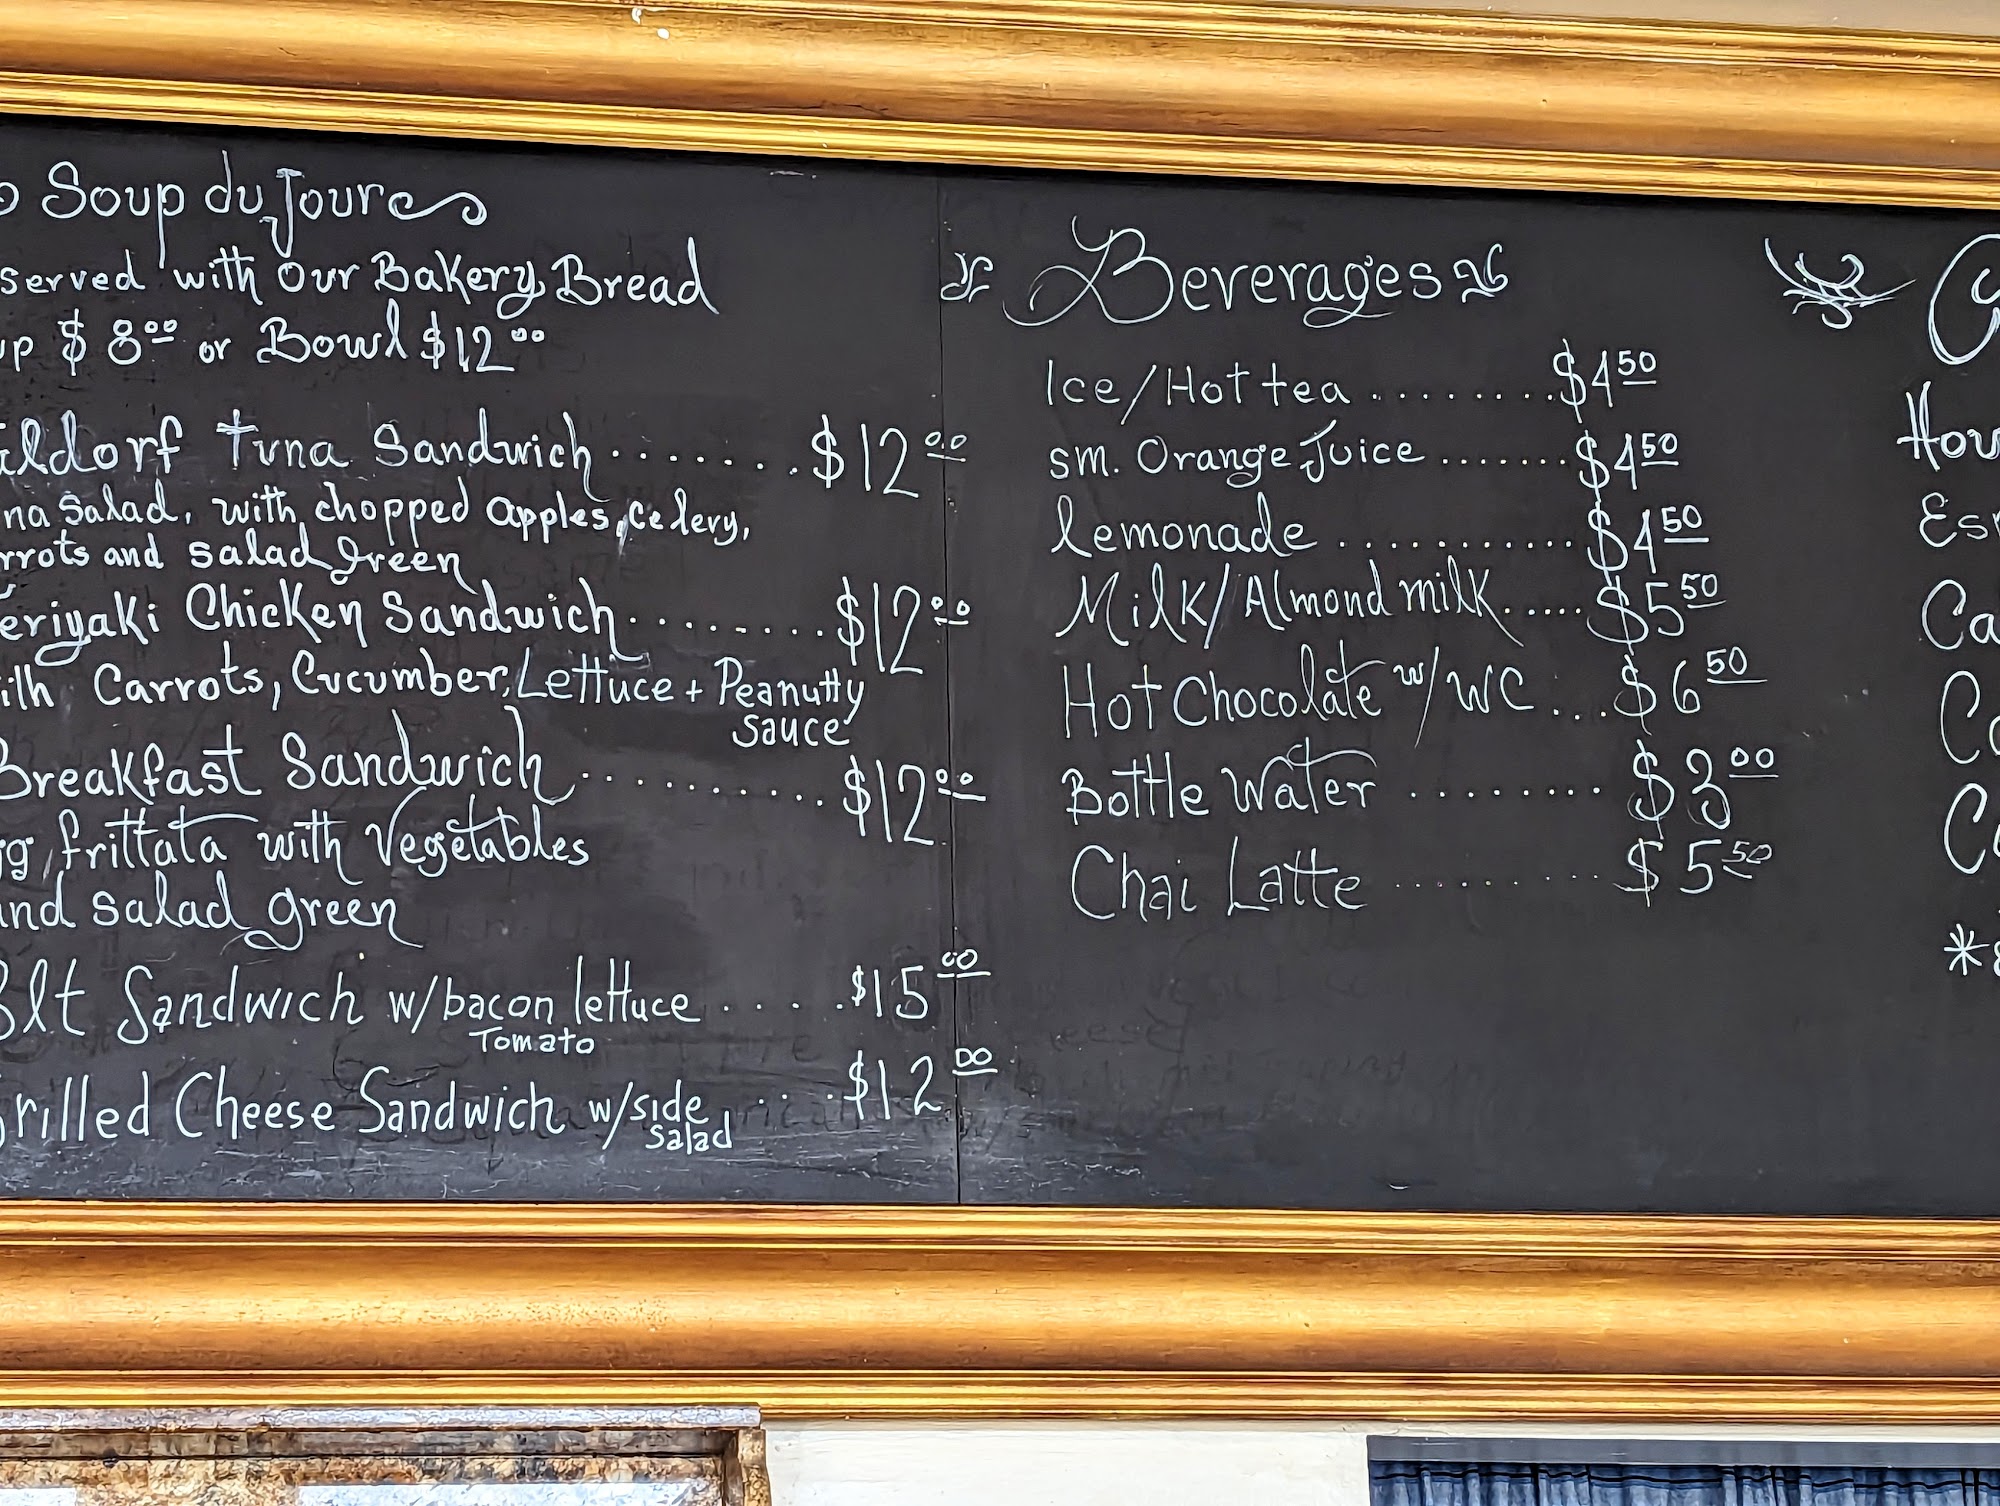 Soup du Jour
served with our Bakery Bread
up $8.00 or Bowl $12.00
aldorf Tuna Sandwich ........ $12.00
na Salad, with chopped apples, celery,
rrots and salad green
eriyaki Chicken Sandwich ........ $12.00
ith Carrots, Cucumber, Lettuce + Peanutty
sauce
Breakfast Sandwich .......... $12.00
gg frittata with Vegetables
and salad green
Blt Sandwich w/bacon lettuce ..... $15.00
Tomato
rilled Cheese Sandwich w/side .... $12.00
salad
Beverages
Ice/Hot tea ......... $4.50
sm. Orange Juice ....... $4.50
lemonade ............ $4.50
Milk/Almond milk ..... $5.50
Hot Chocolate w/ WC ... $6.50
Bottle Water ........ $3.00
Chai Latte .......... $5.50
Hou
Es
Ca
Co